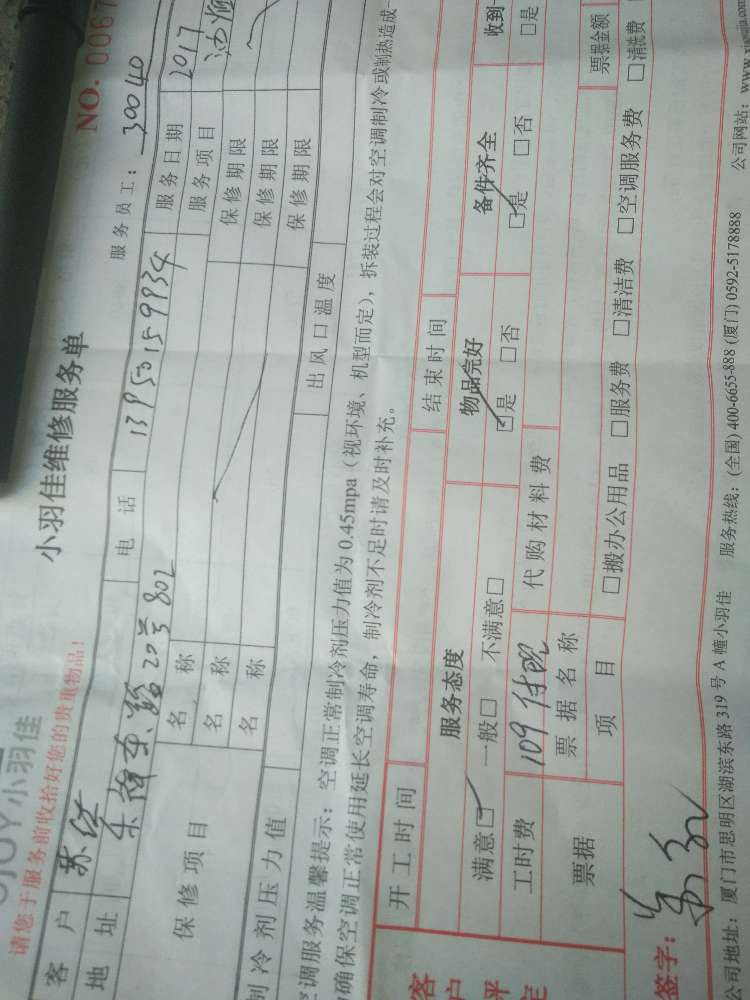 JOY小羽佳
小羽佳维修服务单
NO. 0067
请您于服务前收拾好您的贵重物品!
服务员工: 30040
客户 电话 13950159934 服务日期 2017
地址 20号802 服务项目
保修项目 名称 保修期限
名称 保修期限
名称 保修期限
制冷剂压力值 出风口温度
空调服务温馨提示:空调正常制冷剂压力值为0.45mpa(视环境、机型而定),拆装过程会对空调制冷或制热造成一
确保空调正常使用延长空调寿命,制冷剂不足时请及时补充。
开工时间 结束时间
客户评定 服务态度 物品完好 备件齐全 收到
满意□ 一般□ 不满意□ □是 □否 □是 □否 □是
工时费 109 代购材料费
票据 票据名称 票据金额
项目 □搬办公用品 □服务费 □清洁费 □空调服务费 □清洗费
签字:
公司地址:厦门市思明区湖滨东路319号A幢小羽佳 服务热线:(全国)400-6655-888 (厦门)0592-5178888 公司网站:www.